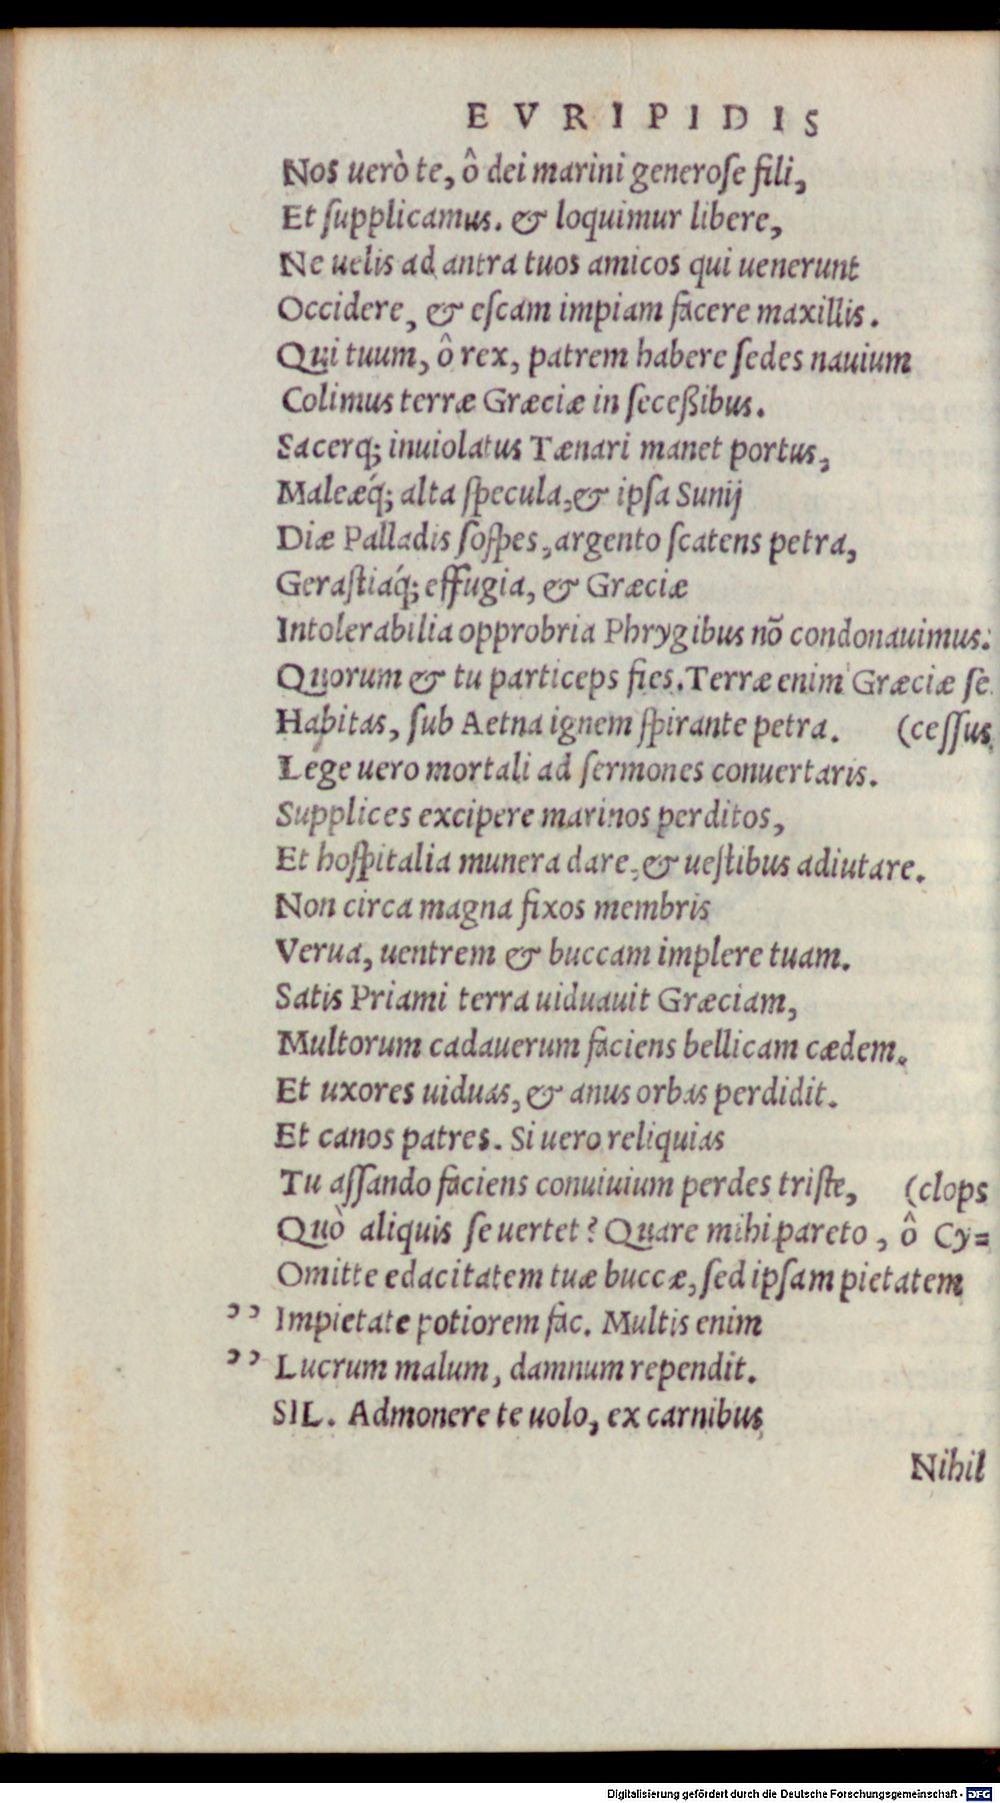 EVRIPIDIS
Nos uerò te, ô dei marini generoſe fili,
Et ſupplicamus. & loquimur libere,
Ne uelis ad antra tuos amicos qui uenerunt
Occidere, & eſcam impiam facere maxillis.
Qui tuum, ô rex, patrem habere ſedes nauium
Colimus terræ Græciæ in ſeceßibus.
Sacerq; inuiolatus Tænari manet portus,
Maleæq́; alta ſpecula, & ipſa Sunij
Diæ Palladis ſoſpes, argento ſcatens petra,
Geraſtiaq́; effugia, & Græciæ
Intolerabilia opprobria Phrygibus nõ condonauimus.
Quorum & tu particeps fies. Terræ enim Græciæ ſe
Habitas, ſub Aetna ignem ſpirante petra. (ceſſus
Lege uero mortali ad ſermones conuertaris.
Supplices excipere marinos perditos,
Et hoſpitalia munera dare, & ueſtibus adiutare.
Non circa magna fixos membris
Verua, uentrem & buccam implere tuam.
Satis Priami terra uiduauit Græciam,
Multorum cadauerum faciens bellicam cædem.
Et uxores uiduas, & anus orbas perdidit.
Et canos patres. Si uero reliquias
Tu aſſando faciens conuiuium perdes triſte, (clops
Quò aliquis ſe uertet? Quare mihi pareto, ô Cy=
Omitte edacitatem tuæ buccæ, ſed ipſam pietatem
” Impietate potiorem fac. Multis enim
” Lucrum malum, damnum rependit.
SIL. Admonere te uolo, ex carnibus
Nihil
Digitalisierung gefördert durch die Deutsche Forschungsgemeinschaft - DFG